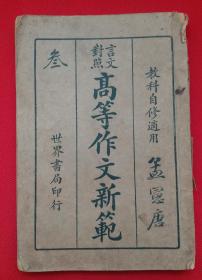 教科自修適用
言文
對照
高等作文新範
叁
世界書局印行